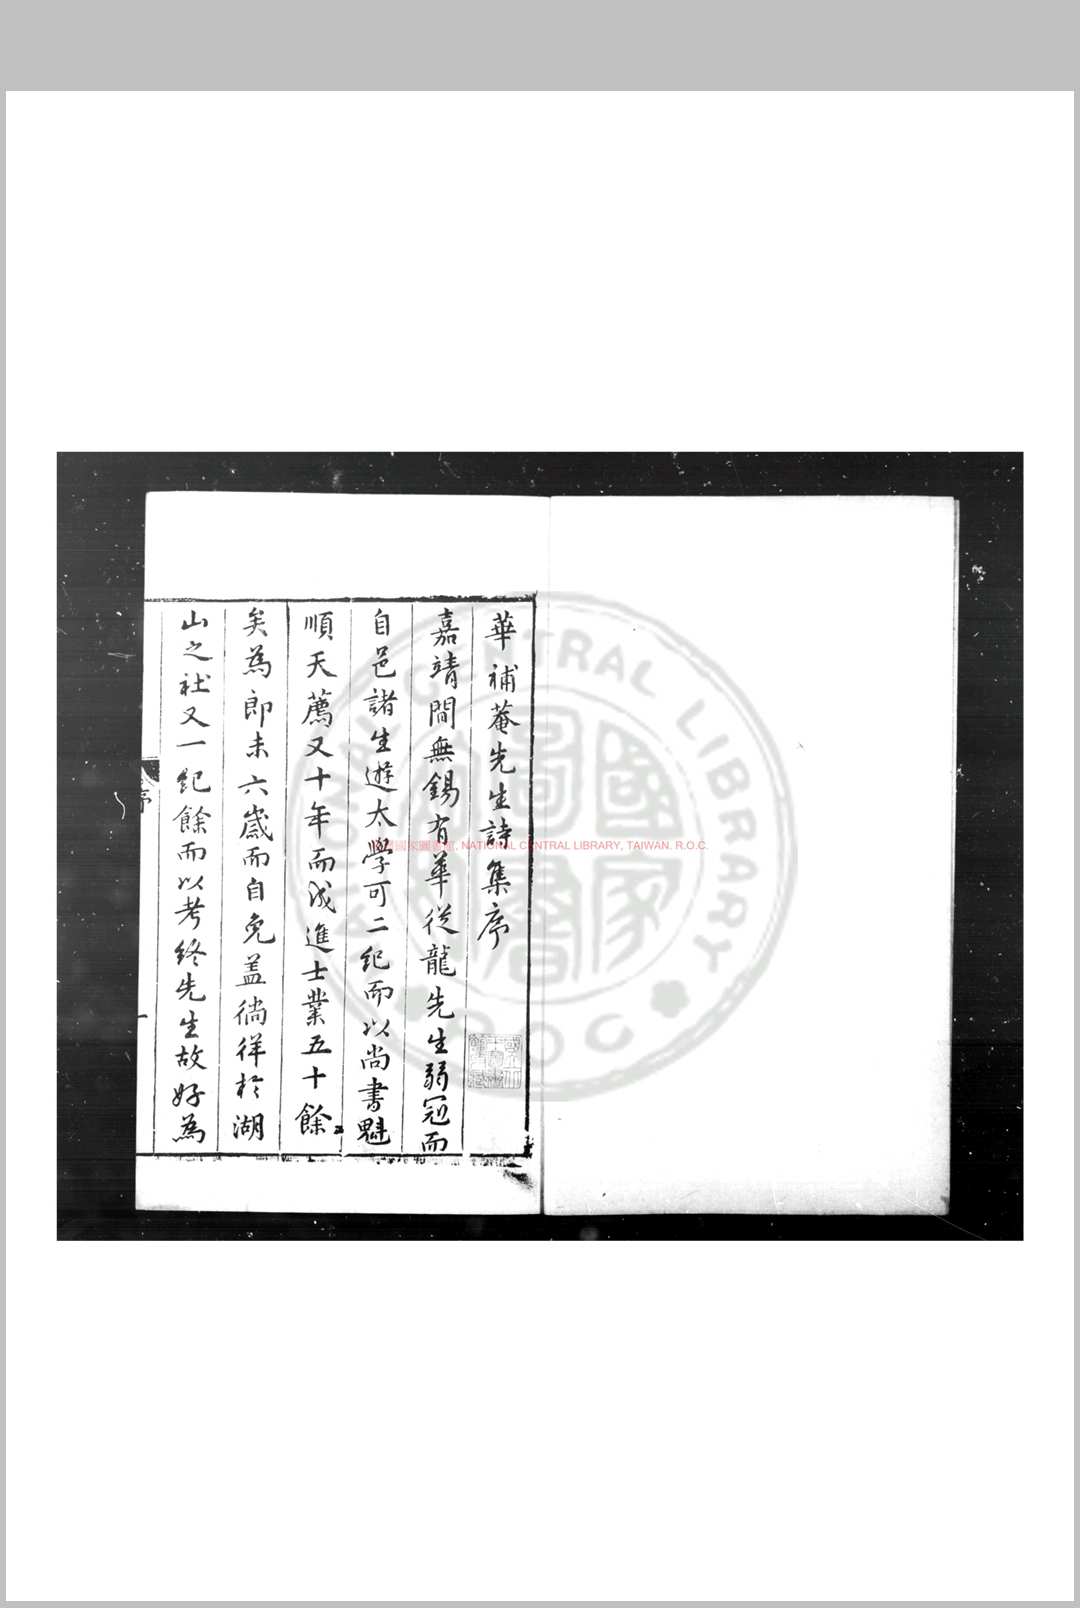 華補菴先生詩集序
嘉靖間無錫有華從龍先生弱冠而
自邑諸生遊太學可二紀而以尚書魁
順天薦又十年而成進士業五十餘
矣為郎未六歲而自免盖徜徉於湖
山之社又一紀餘而以考終先生故好為
序
一
國家圖書館, NATIONAL CENTRAL LIBRARY, TAIWAN. R.O.C.
NATIONAL CENTRAL LIBRARY
R.O.C.